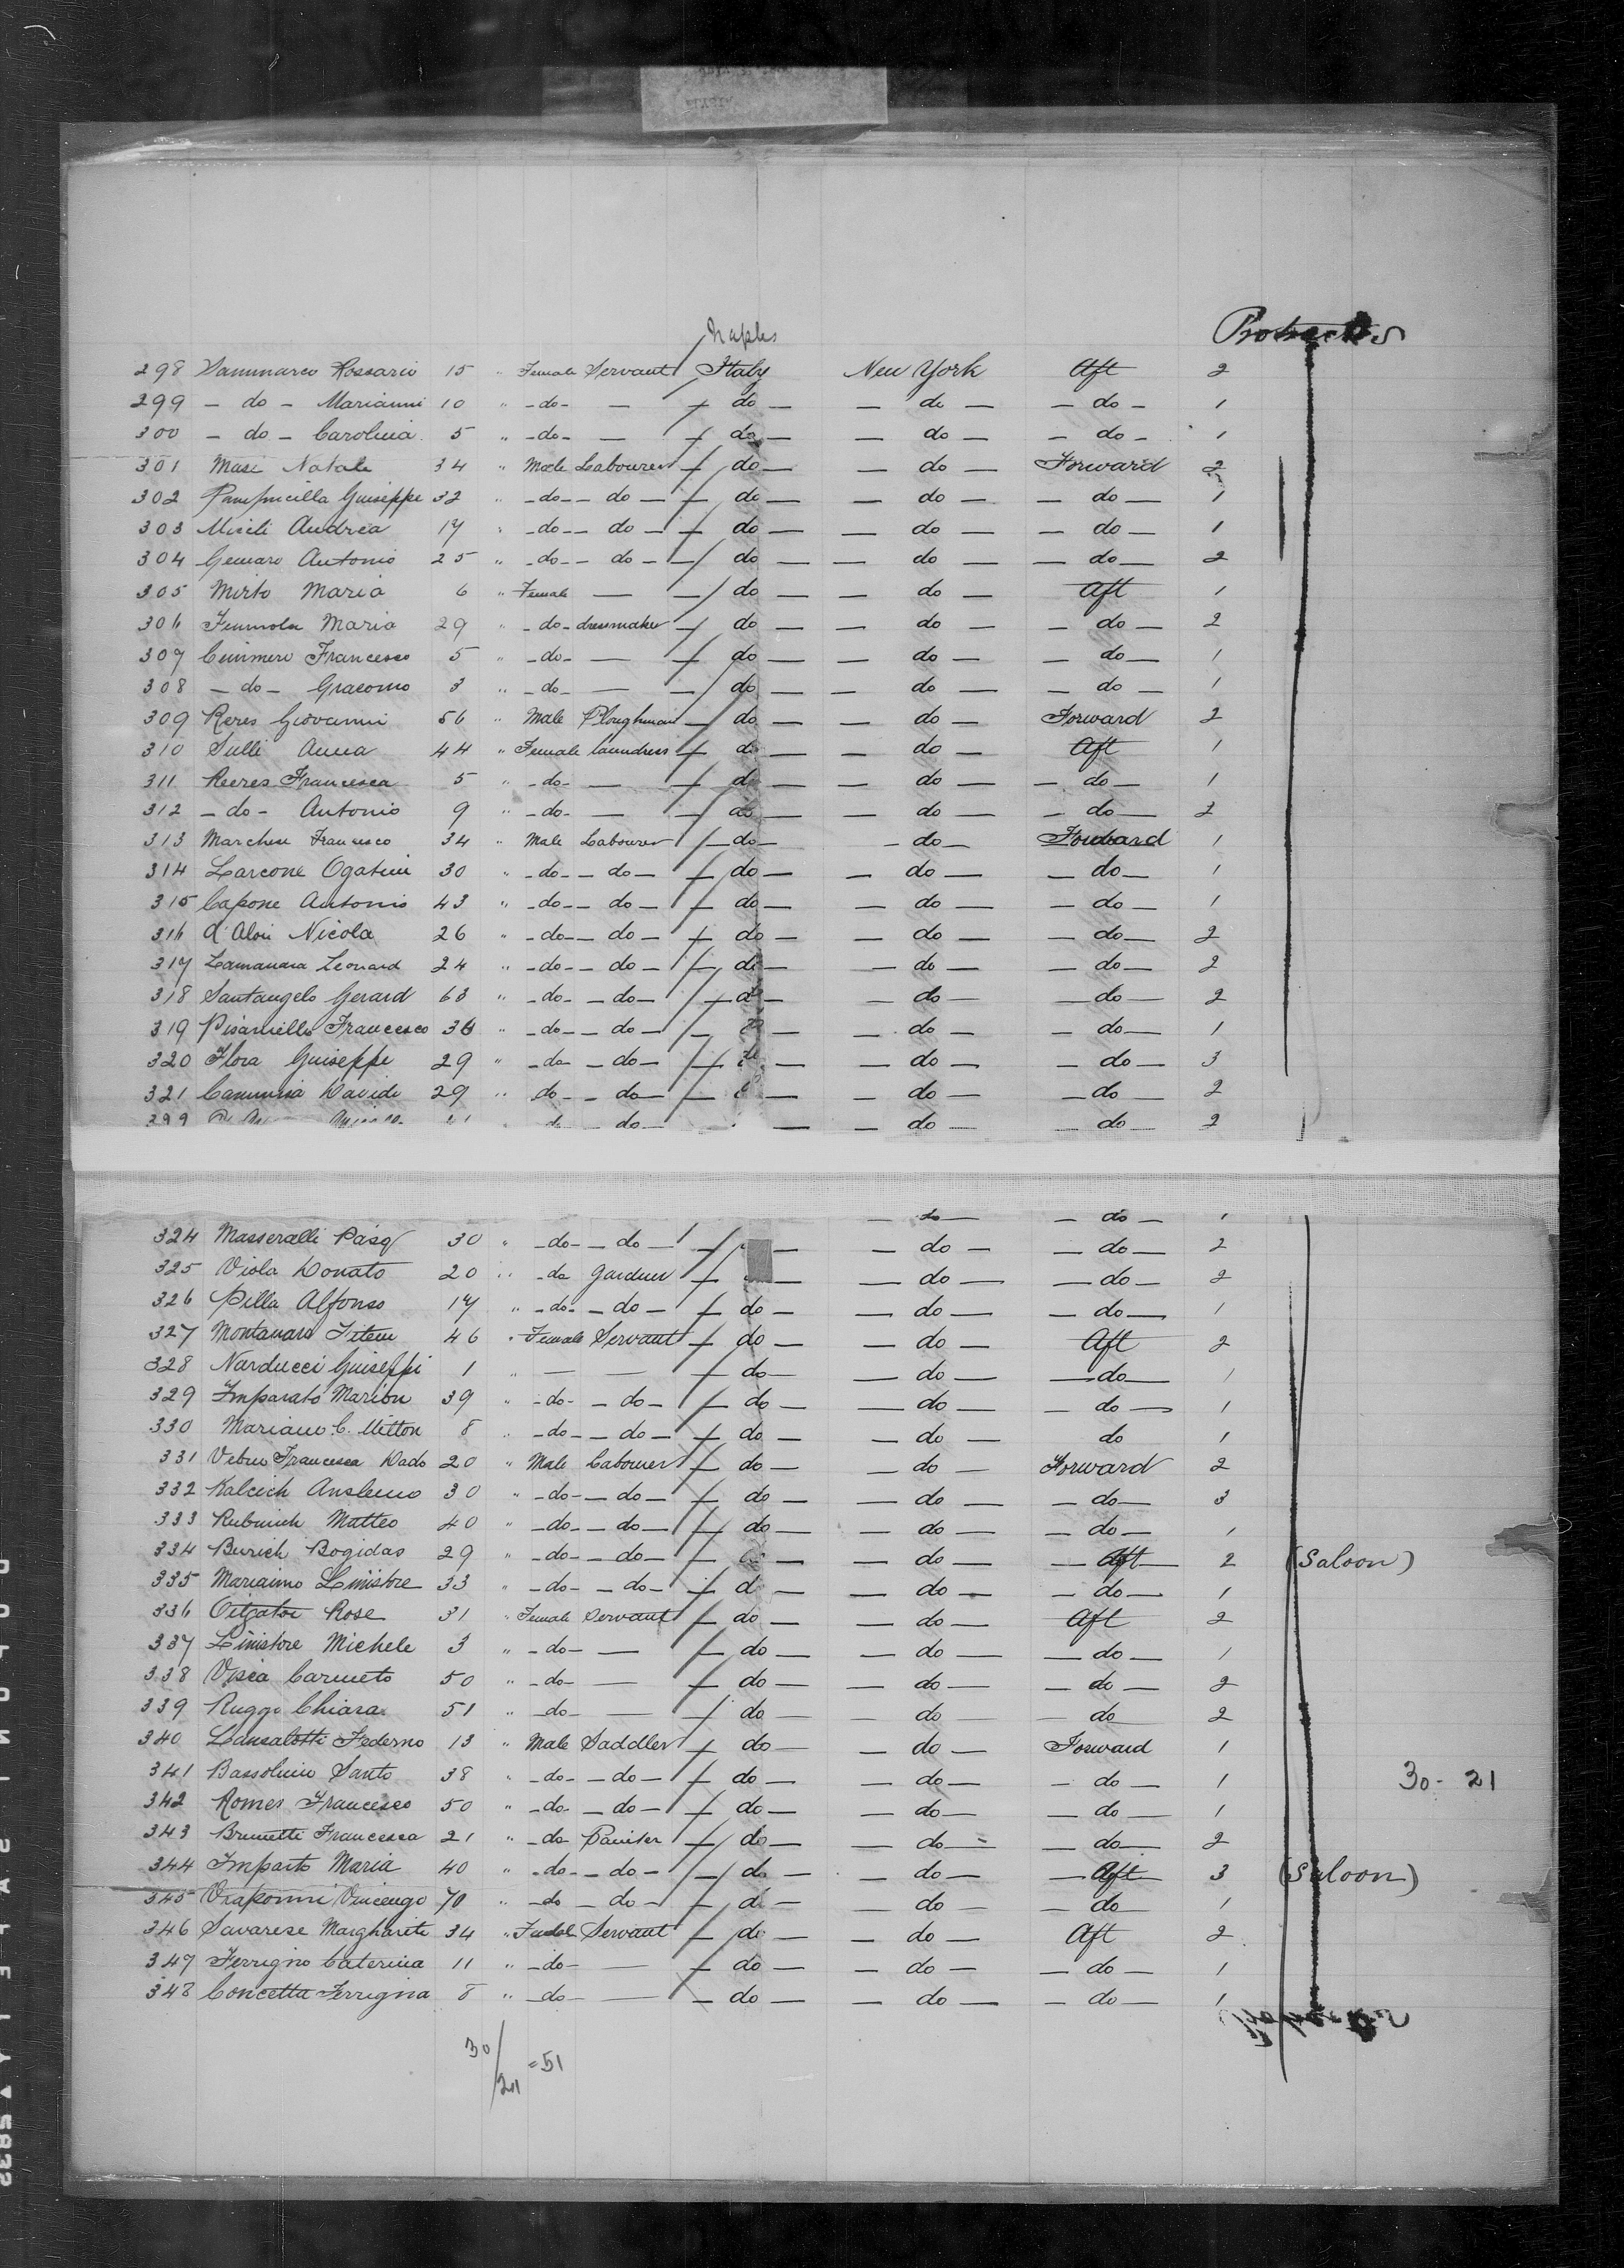 Naples
Protracted
298 Dammarco Rossario 15 " Female Servant / Italy New York Aft 2
299 - do - Marianni 10 " - do - — / do — — do — - do - 1
300 - do - Carolina 5 " - do - — / do — — do — - do - 1
301 Masi Natale 34 " Male Labourer / do — — do — Forward 2
302 Guiseppe 32 " - do - - do - / do — — do — - do - 1
303 Miceli Andrea 17 " - do - - do - / do — — do — - do - 1
304 Genaro Antonio 25 " - do - - do - / do — — do — - do - 2
305 Mirto Maria 6 " Female — / do — — do — Aft 1
306 Maria 29 " - do - dressmaker / do — — do — - do - 2
307 Francesco 5 " - do - — / do — — do — - do - 1
308 - do - Gracomo 3 " - do - — / do — — do — - do - 1
309 Reres Giovanni 56 " Male Ploughman / do — — do — Forward 2
310 Sulli Anna 44 " Female laundress / do — — do — Aft 1
311 Reeres Francesca 5 " - do - — / do — — do — - do - 1
312 - do - Antonio 9 " - do - — / do — — do — - do - 2
313 Marchese Francesco 34 " Male Labourer / do — — do — Forward 1
314 Larcone Ogatini 30 " - do - - do - / do — — do — - do - 1
315 Capone Antonio 43 " - do - - do - / do — — do — - do - 1
316 d'Aloi Nicola 26 " - do - - do - / do — — do — - do - 2
317 Lamanara Leonard 24 " - do - - do - / do — — do — - do - 2
318 Santangelo Gerard 63 " - do - - do - / do — — do — - do - 2
319 Pisaniello Francesco 36 " - do - - do - / — — do — - do - 1
320 Flora Guiseppe 29 " - do - - do - / — — do — - do - 3
321 Cammisa Davide 29 " do - - do - / — — do — - do - 2
- do - — do — - do - 2
— do — - do - 1
324 Masseralli Pasq 30 " - do - - do - / — — do — - do - 2
325 Viola Donato 20 " - do Gardner / — — do — - do - 2
326 Pilla Alfonso 17 " - do - - do - / do — — do — - do - 1
327 Montanaro 46 " Female Servant / do — — do — Aft 2
328 Narducci Guiseppi 1 " — — / do — — do — - do - 1
329 Imparato Marion 39 " - do - - do - / do — — do — - do - 1
330 Mariano C. Mitton 8 " - do - - do - / do — — do — do 1
331 Francesca Dado 20 " Male Labourer / do — — do — Forward 2
332 Kalcich Anslemo 30 " - do - - do - / do — — do — - do - 3
333 Rubinich Matteo 40 " - do - - do - / do — — do — - do - 1
334 Burich Bogidas 29 " - do - - do - / — — do — - Aft - 2 (Saloon)
335 Mariaino Linistore 33 " - do - - do - / d — — do — - do - 1
336 Rose 31 " Female Servant / do — — do — Aft 2
337 Linistore Michele 3 " - do - — / do — — do — - do - 1
338 Visca Carmeto 50 " - do - — / do — — do — - do - 2
339 Ruggo Chiara 51 " - do - — / do — — do — - do 2
340 Lansalotti Federno 13 " Male Saddler / do — — do — Forward 1
341 Bassolino Santo 38 " - do - - do - / do — — do — - do - 1
30 - 21
342 Romes Francesco 50 " - do - - do - / do — — do — - do - 1
343 Brunetti Francesca 21 " - do Painter / do — — do — - do - 2
344 Imparto Maria 40 " - do - - do - / do — — do — - Aft - 3 (Saloon)
345 Viaponni Vincengo 70 " - do - do - / do — — do — - do - 1
346 Savarese Margharete 34 " Female Servant / do — — do — Aft 2
347 Ferrigno Caterina 11 " - do - — / do — — do — - do - 1
348 Concetta Ferrigna 8 " - do - — / do — — do — - do - 1
30/21 = 51